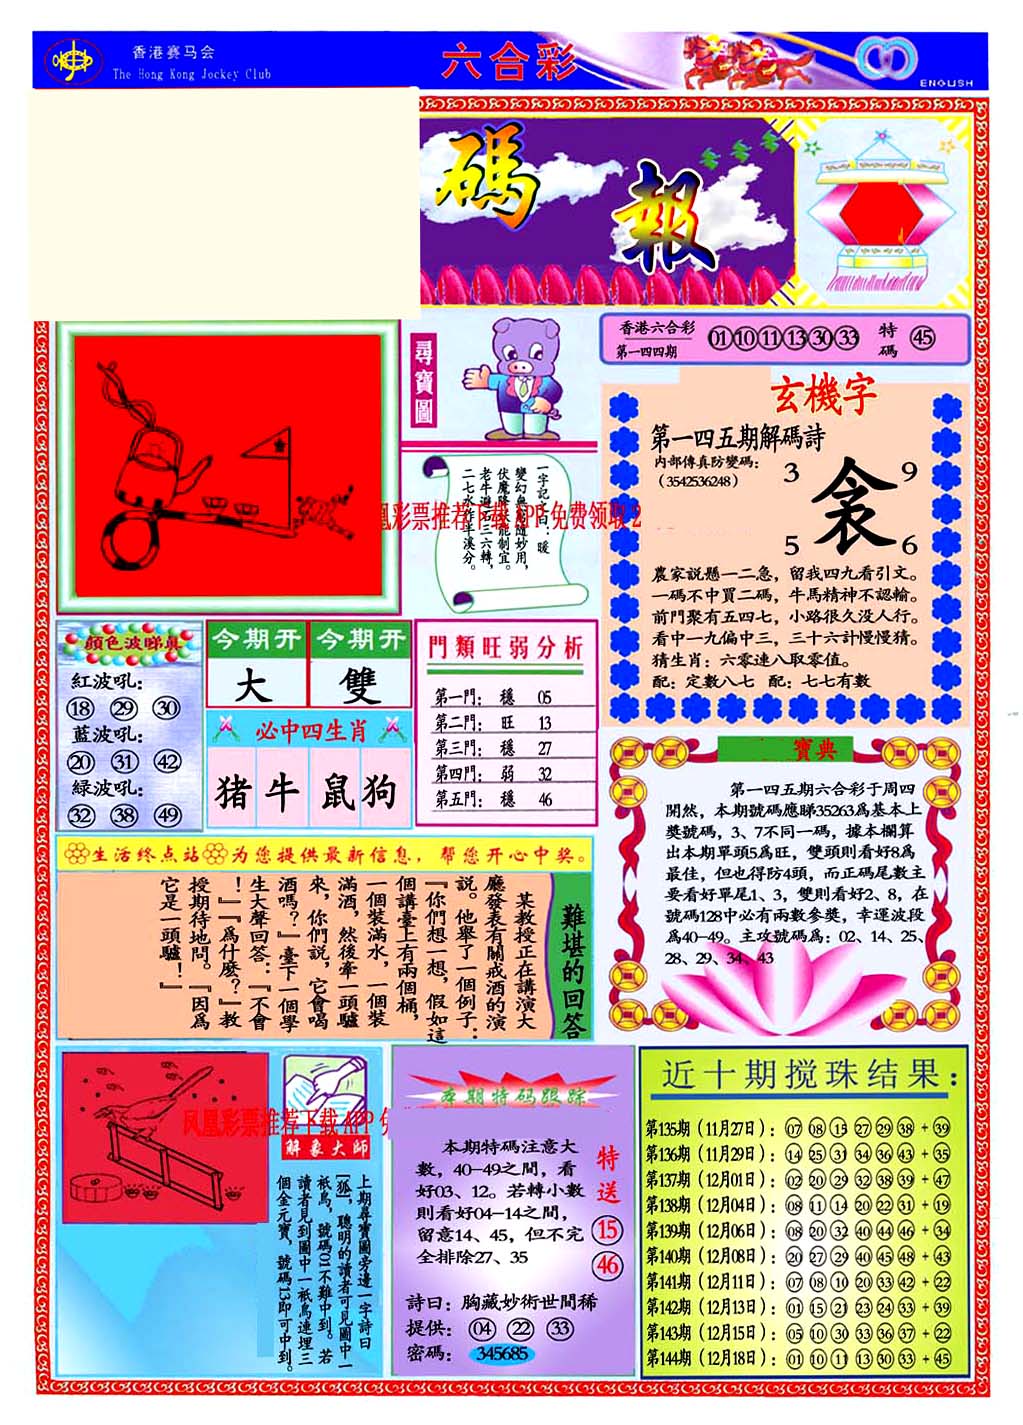 香港赛马会
The Hong Kong Jockey Club
六合彩
ENGLISH
碼報
尋寶圖
香港六合彩
第一四四期
01 10 11 13 30 33
特碼
45
一字記之曰：暖
變幻無窮隨妙用，
伏魔降妖能制宜。
老牛避石三六轉，
二七水作半溪分。
凰彩票推荐下载 APP 免费领取 2
玄機字
第一四五期解碼詩
内部傳真防變碼：
（3542536248）
3 9
5 6
農家説懸一二急，留我四九看引文。
一碼不中買二碼，牛馬精神不認輸。
前門聚有五四七，小路很久没人行。
看中一九偏中三，三十六計慢慢猜。
猜生肖：六零連八取零值。
配：定數八七 配：七七有數
顏色波睇真
紅波吼：
18 29 30
藍波吼：
20 31 42
緑波吼：
32 38 49
今期开 今期开
大 雙
必中四生肖
猪 牛 鼠 狗
門類旺弱分析
第一門： 穩 05
第二門： 旺 13
第三門： 穩 27
第四門： 弱 32
第五門： 穩 46
寶典
第一四五期六合彩于周四
開然，本期號碼應睇35263爲基本上
獎號碼，3、7不同一碼，據本欄算
出本期單頭5爲旺，雙頭則看好8爲
最佳，但也得防4頭，而正碼尾數主
要看好單尾1、3，雙則看好2、8，在
號碼128中必有兩數參獎，幸運波段
爲40-49。主攻號碼爲：02、14、25、
28、29、34、43
生活终点站 为您提供最新信息，帮您开心中奖。
難堪的回答
某教授正在講演大
廳發表有關戒酒的演
説。他舉了一個例子：
『你們想一想，假如這
個講臺上有兩個桶，
一個裝滿水，一個裝
滿酒，然後牽一頭驢
來，你們説，它會喝
酒嗎？』臺下一個學
生大聲回答：『不會
！』『爲什麽？』教
授期待地問。『因爲
它是一頭驢！』
凤凰彩票推荐下载 APP 免
解象大師
上期尋寶圖旁邊一字詩曰
「狐」，聰明的讀者可見圖中一
祇鳥，號碼01不難中到。若
讀者見到圖中一祇鳥連埋三
個金元寶，號碼13即可中到。
本期特码跟踪
本期特碼注意大
數，40-49之間，看
好03、12。若轉小數
則看好04-14之間，
留意14、45，但不完
全排除27、35
特送
15
46
詩曰：胸藏妙術世間稀
提供： 04 22 33
密碼： 345685
近十期搅珠结果：
第135期（11月27日）： 07 08 15 27 29 38 + 39
第136期（11月29日）： 14 25 31 34 36 43 + 35
第137期（12月01日）： 02 20 29 32 38 39 + 47
第138期（12月04日）： 08 11 14 20 22 31 + 19
第139期（12月06日）： 08 20 32 40 44 46 + 34
第140期（12月08日）： 20 27 29 40 45 48 + 43
第141期（12月11日）： 07 08 10 20 33 42 + 22
第142期（12月13日）： 01 15 21 23 24 33 + 39
第143期（12月15日）： 05 10 30 33 36 37 + 22
第144期（12月18日）： 01 10 11 13 30 33 + 45